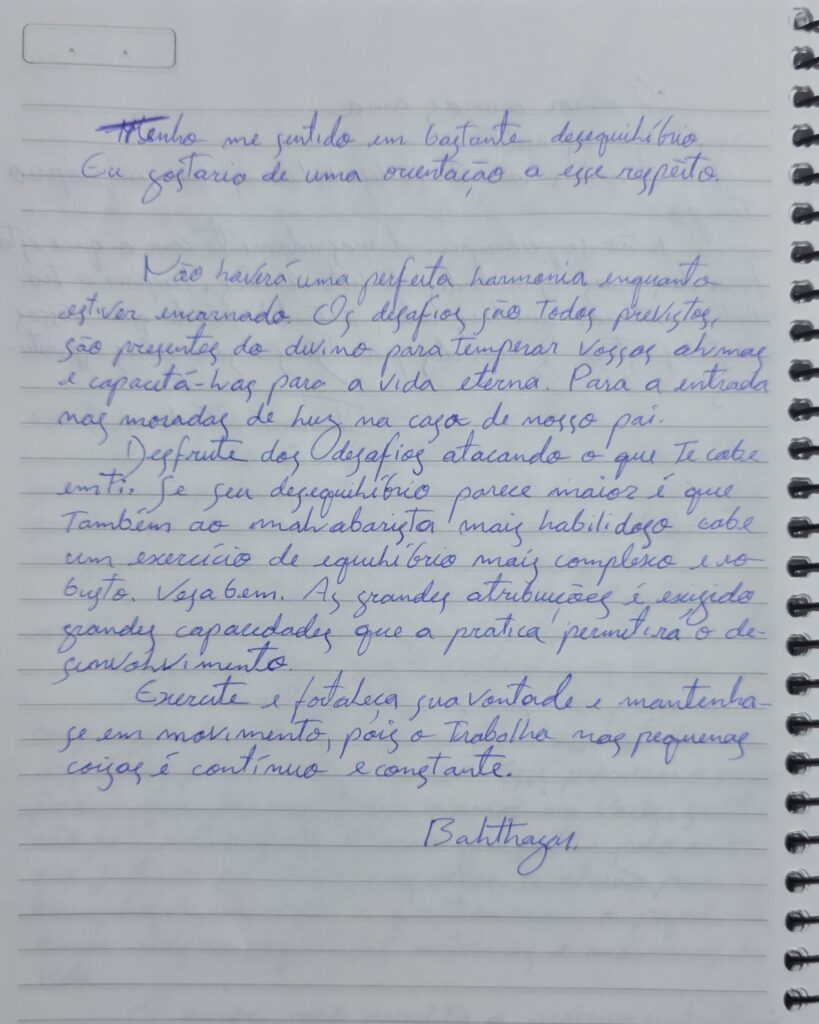 Tenho me sentido em bastante desequilíbrio.
Eu gostaria de uma orientação a esse respeito.
Não haverá uma perfeita harmonia enquanto
estiver encarnado. Os desafios são todos previstos,
são presentes do divino para temperar vossas almas
e capacitá-las para a vida eterna. Para a entrada
nas moradas de luz na casa de nosso pai.
Desfrute dos desafios atacando o que te cabe
em ti. Se seu desequilíbrio parece maior é que
também ao malabarista mais habilidoso cabe
um exercício de equilíbrio mais complexo e ro-
busto. Veja bem. As grandes atribuições é exigido
grandes capacidades que a pratica permitirá o de-
senvolvimento.
Exercite e fortaleça sua vontade e mantenha-
se em movimento, pois o trabalho nas pequenas
coisas é contínuo e constante.
Balthazar.